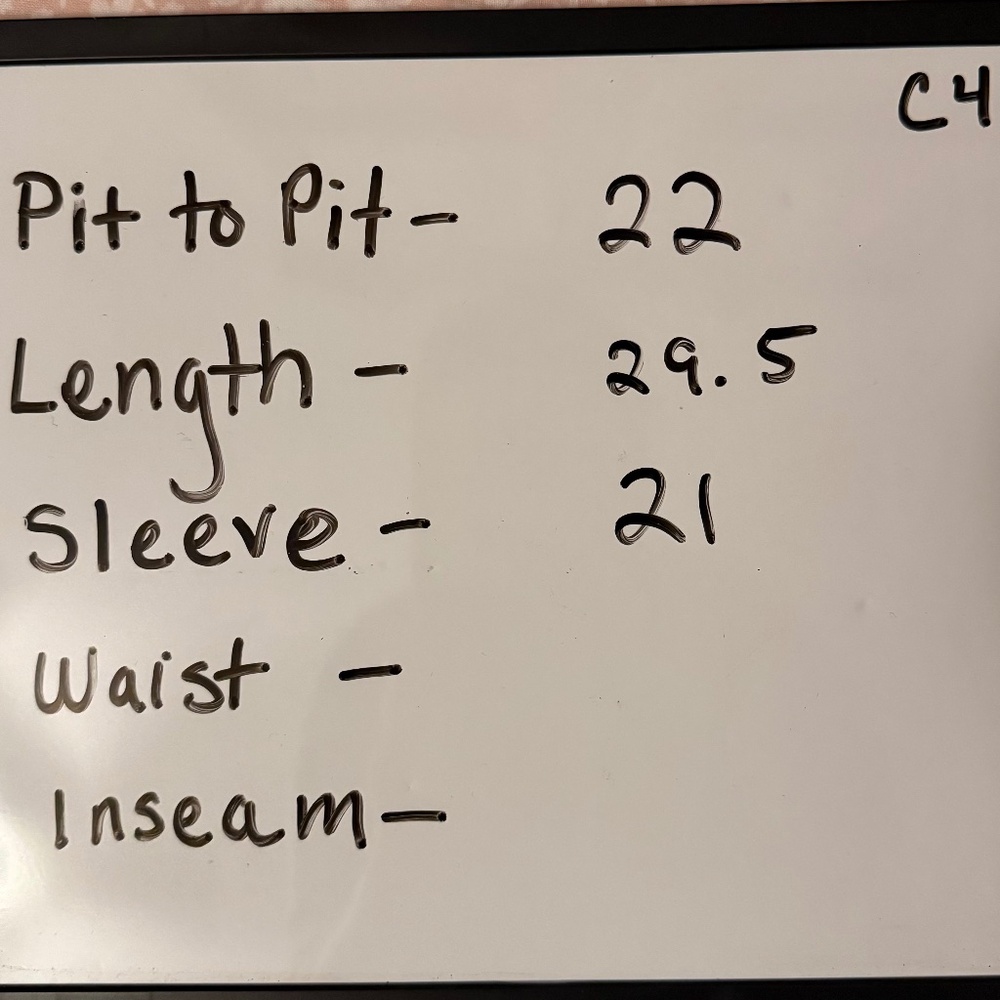 C4
Pit to Pit - 22
Length - 29.5
Sleeve - 21
Waist -
Inseam -